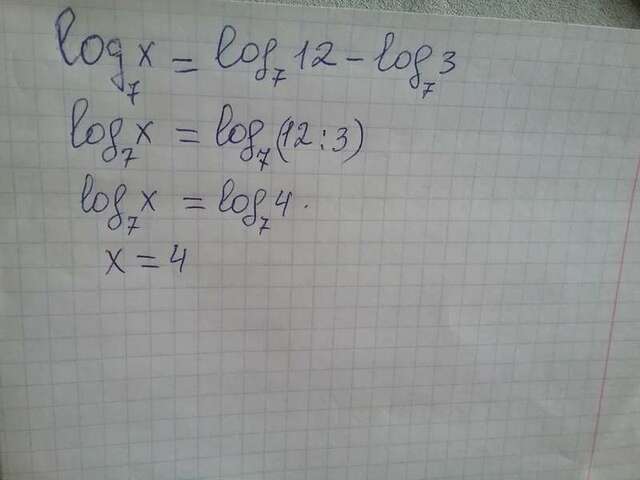 log₇x = log₇12 - log₇3
log₇x = log₇(12:3)
log₇x = log₇4.
x = 4